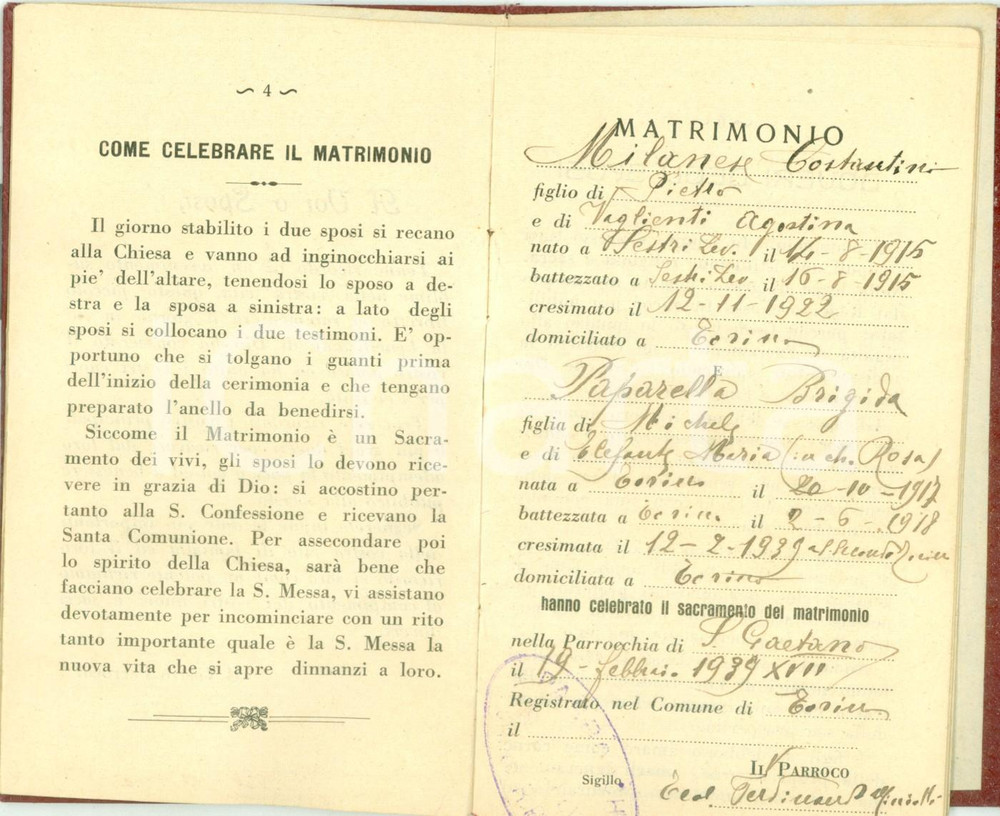 4
COME CELEBRARE IL MATRIMONIO
Il giorno stabilito i due sposi si recano
alla Chiesa e vanno ad inginocchiarsi ai
pie' dell'altare, tenendosi lo sposo a de-
stra e la sposa a sinistra: a lato degli
sposi si collocano i due testimoni. E' op-
portuno che si tolgano i guanti prima
dell'inizio della cerimonia e che tengano
preparato l'anello da benedirsi.
Siccome il Matrimonio è un Sacra-
mento dei vivi, gli sposi lo devono rice-
vere in grazia di Dio: si accostino per-
tanto alla S. Confessione e ricevano la
Santa Comunione. Per assecondare poi
lo spirito della Chiesa, sarà bene che
facciano celebrare la S. Messa, vi assistano
devotamente per incominciare con un rito
tanto importante quale è la S. Messa la
nuova vita che si apre dinnanzi a loro.
MATRIMONIO
Milanese Costantino
figlio di Pietro
e di Vaglienti Agostina
nato a Sestri Lev. il 14-8-1915
battezzato a Sestri Lev il 16-8-1915
cresimato il 12-11-1922
domiciliato a Torino
E
Paparella Brigida
figlia di Michele
e di Elefante Maria Rosa)
nata a Torino il 20-10-1917
battezzata a Torino il 2-6-1918
cresimata il 12-2-1939
domiciliata a Torino
hanno celebrato il sacramento del matrimonio
nella Parrocchia di S. Gaetano
il 19 febbr. 1939 XVII
Registrato nel Comune di Torino
il
IL PARROCO
Sigillo